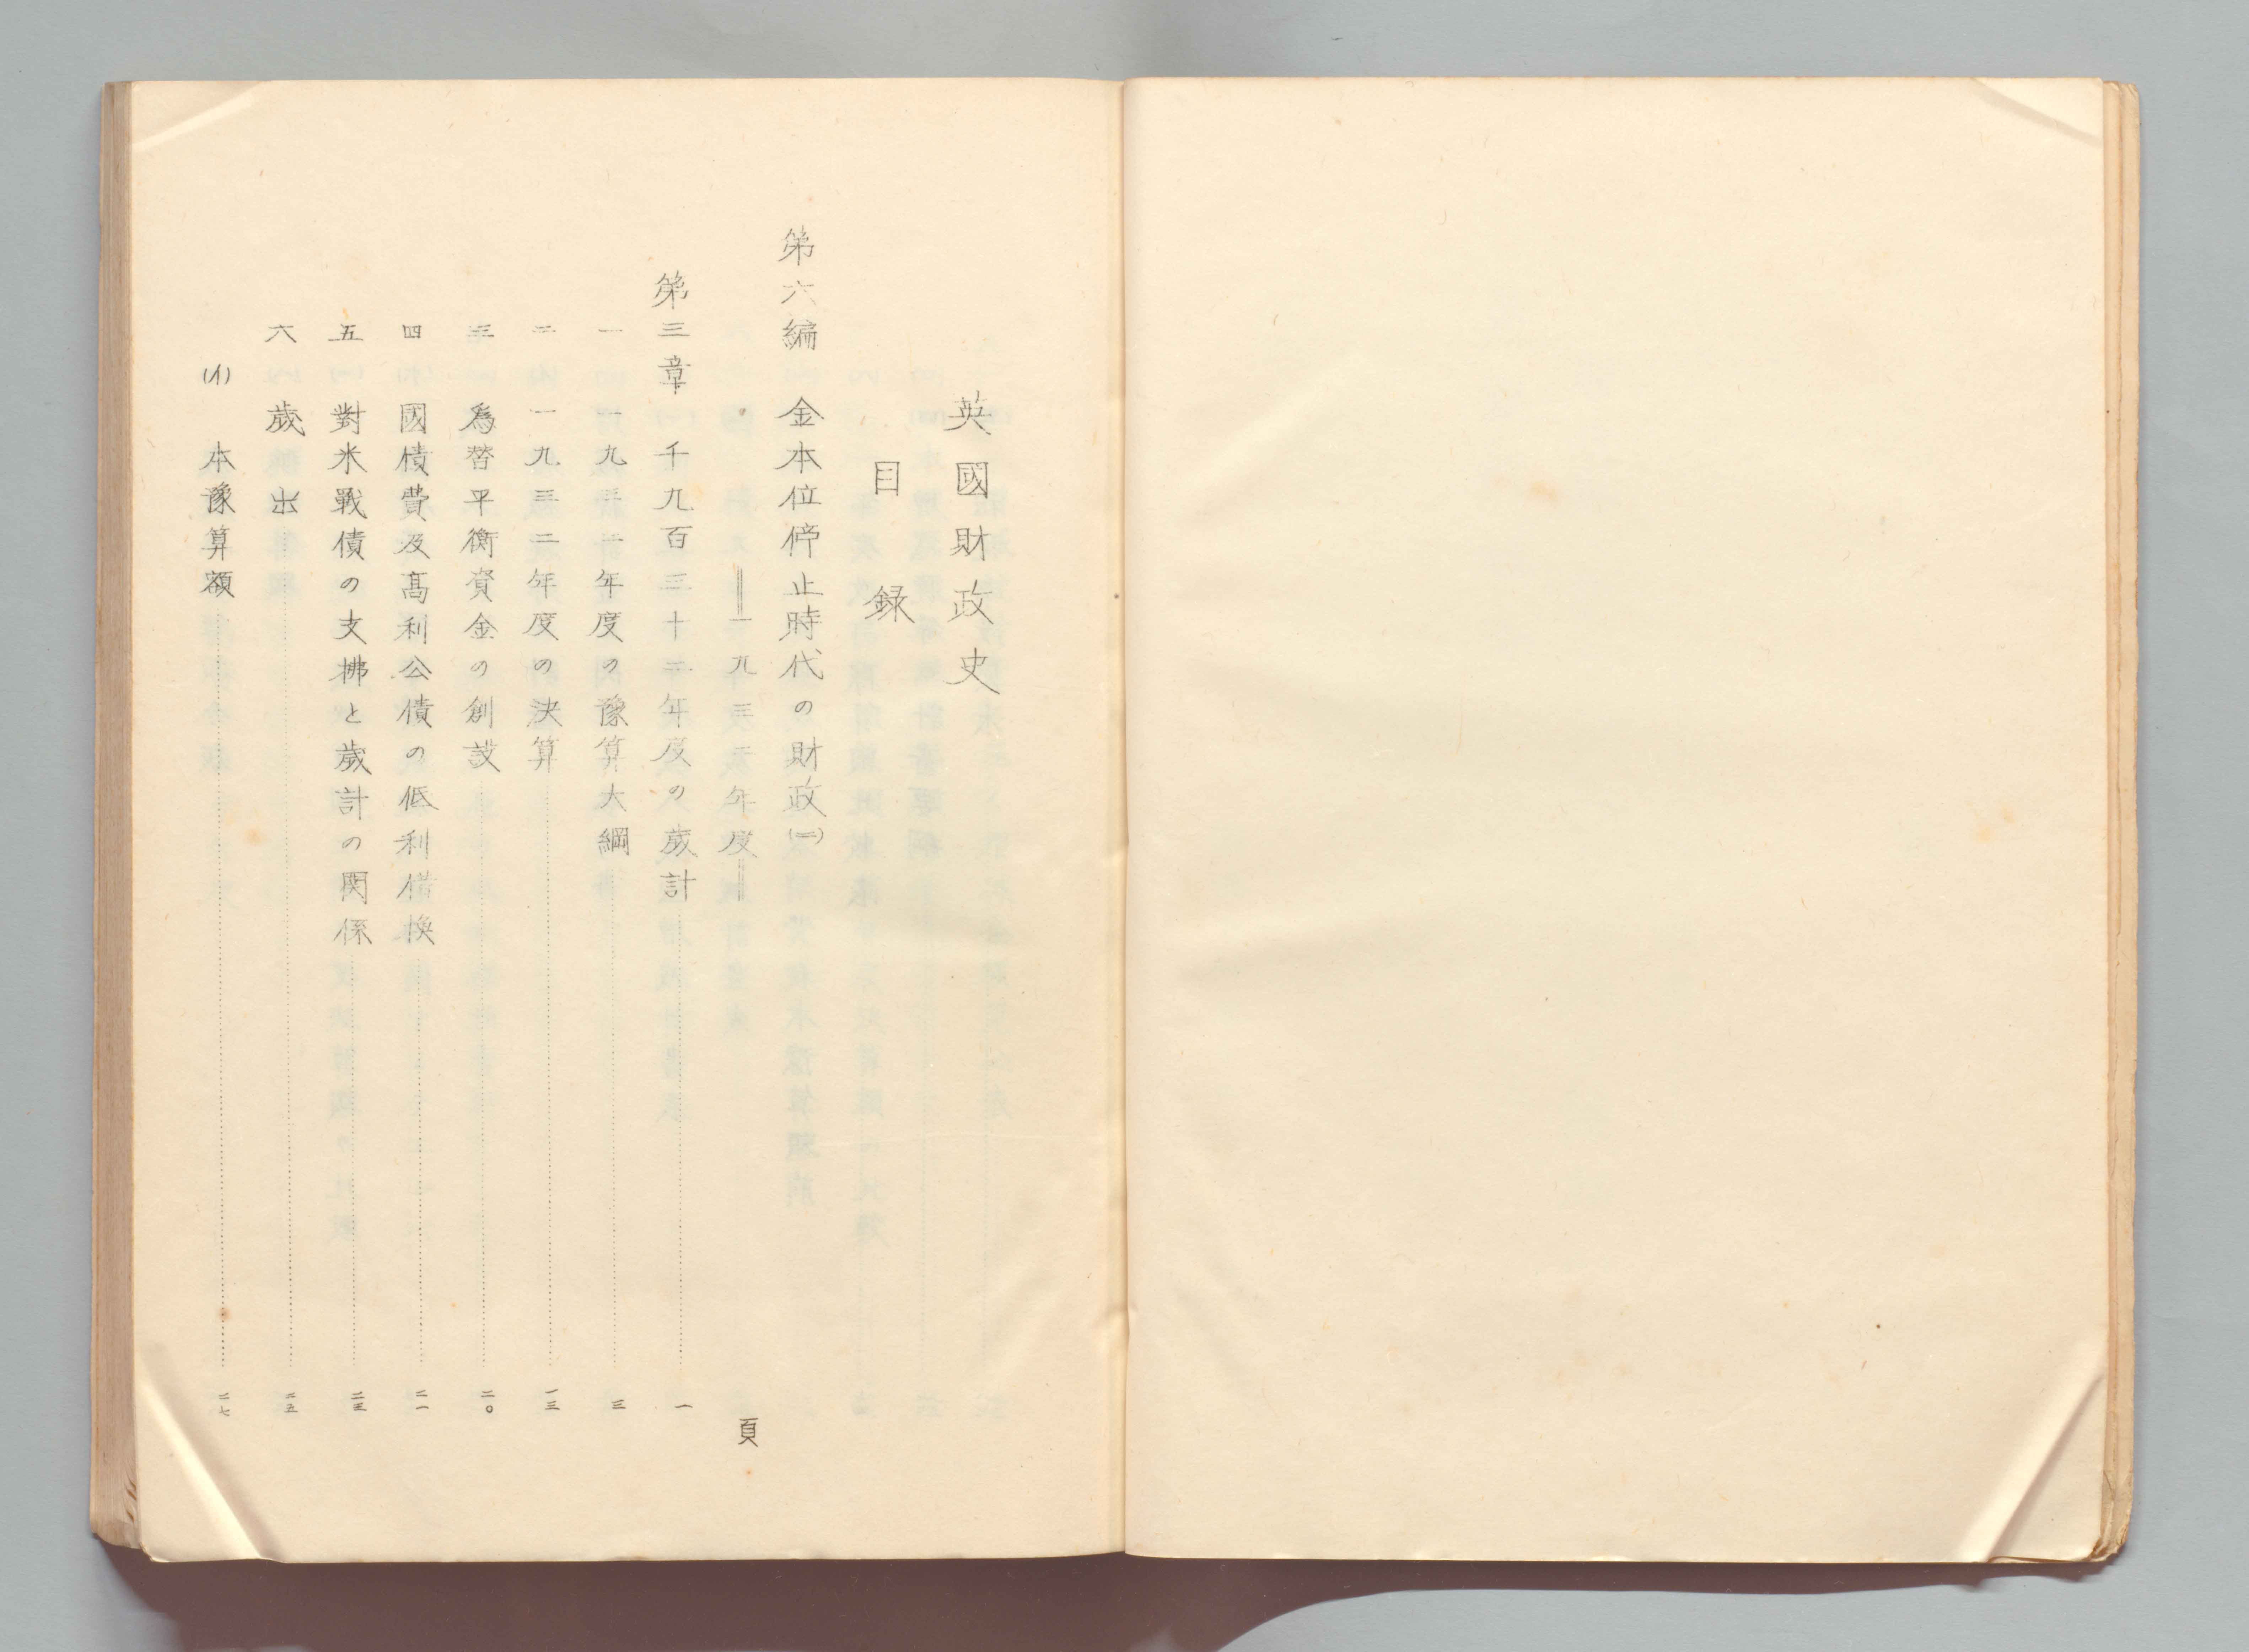 英國財政史
目録
第六編 金本位停止時代の財政(二)
＝一九三二年度＝
頁
第三章 千九百三十二年度の歳計……一
一 一九三二年度の豫算大綱……三
二 一九三二年度の決算……一三
三 為替平衡資金の創設……二〇
四 國債費及高利公債の低利借換……二一
五 對米戰債の支拂と歳計の関係……二三
六 歳出……二五
(イ) 本豫算額……二七